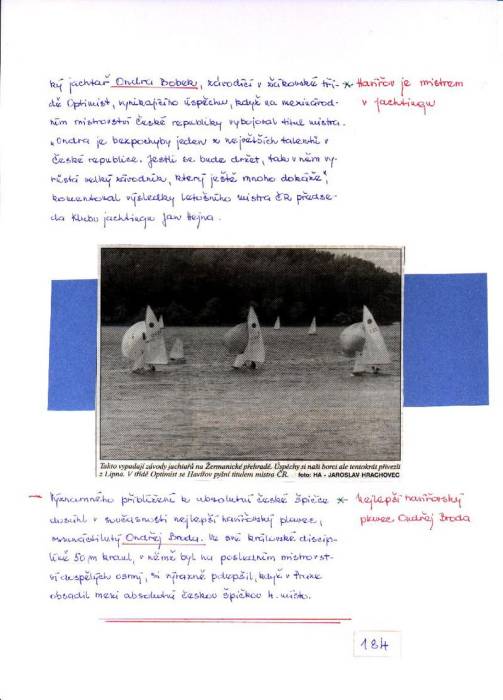 ký jachtař Ondra Bobek, závodící v žákovské tří-
dě Optimist, vynikajícího úspěchu, když na mezinárod-
ním mistrovství České republiky vybojoval titul mistra.
„Ondra je bezpochyby jeden z největších talentů v
České republice. Jestli se bude držet, tak v něm vy-
růstá velký závodník, který ještě mnoho dokáže,"
komentoval výsledky letošního mistra ČR předse-
da Klubu jachtingu Jan Hejna.
* Havířov je mistrem
v jachtingu
Takto vypadají závody jachtařů na Žermanické přehradě. Úspěchy si naši borci ale tentokrát přivezli
z Lipna. V třídě Optimist se Havířov pyšní titulem mistra ČR. foto: HA - JAROSLAV HRACHOVEC
— Významného přiblížení k absolutní české špičce
dosáhl v současnosti nejlepší havířovský plavec,
Ondřej Broda. Ve své královské discip-
líně 50 m kraul, v němž byl na posledním mistrovst-
ví dospělých osmý, si výrazně polepšil, když v Praze
obsadil mezi absolutní českou špičkou 4. místo.
* Nejlepší havířovský
plavec Ondřej Broda
184